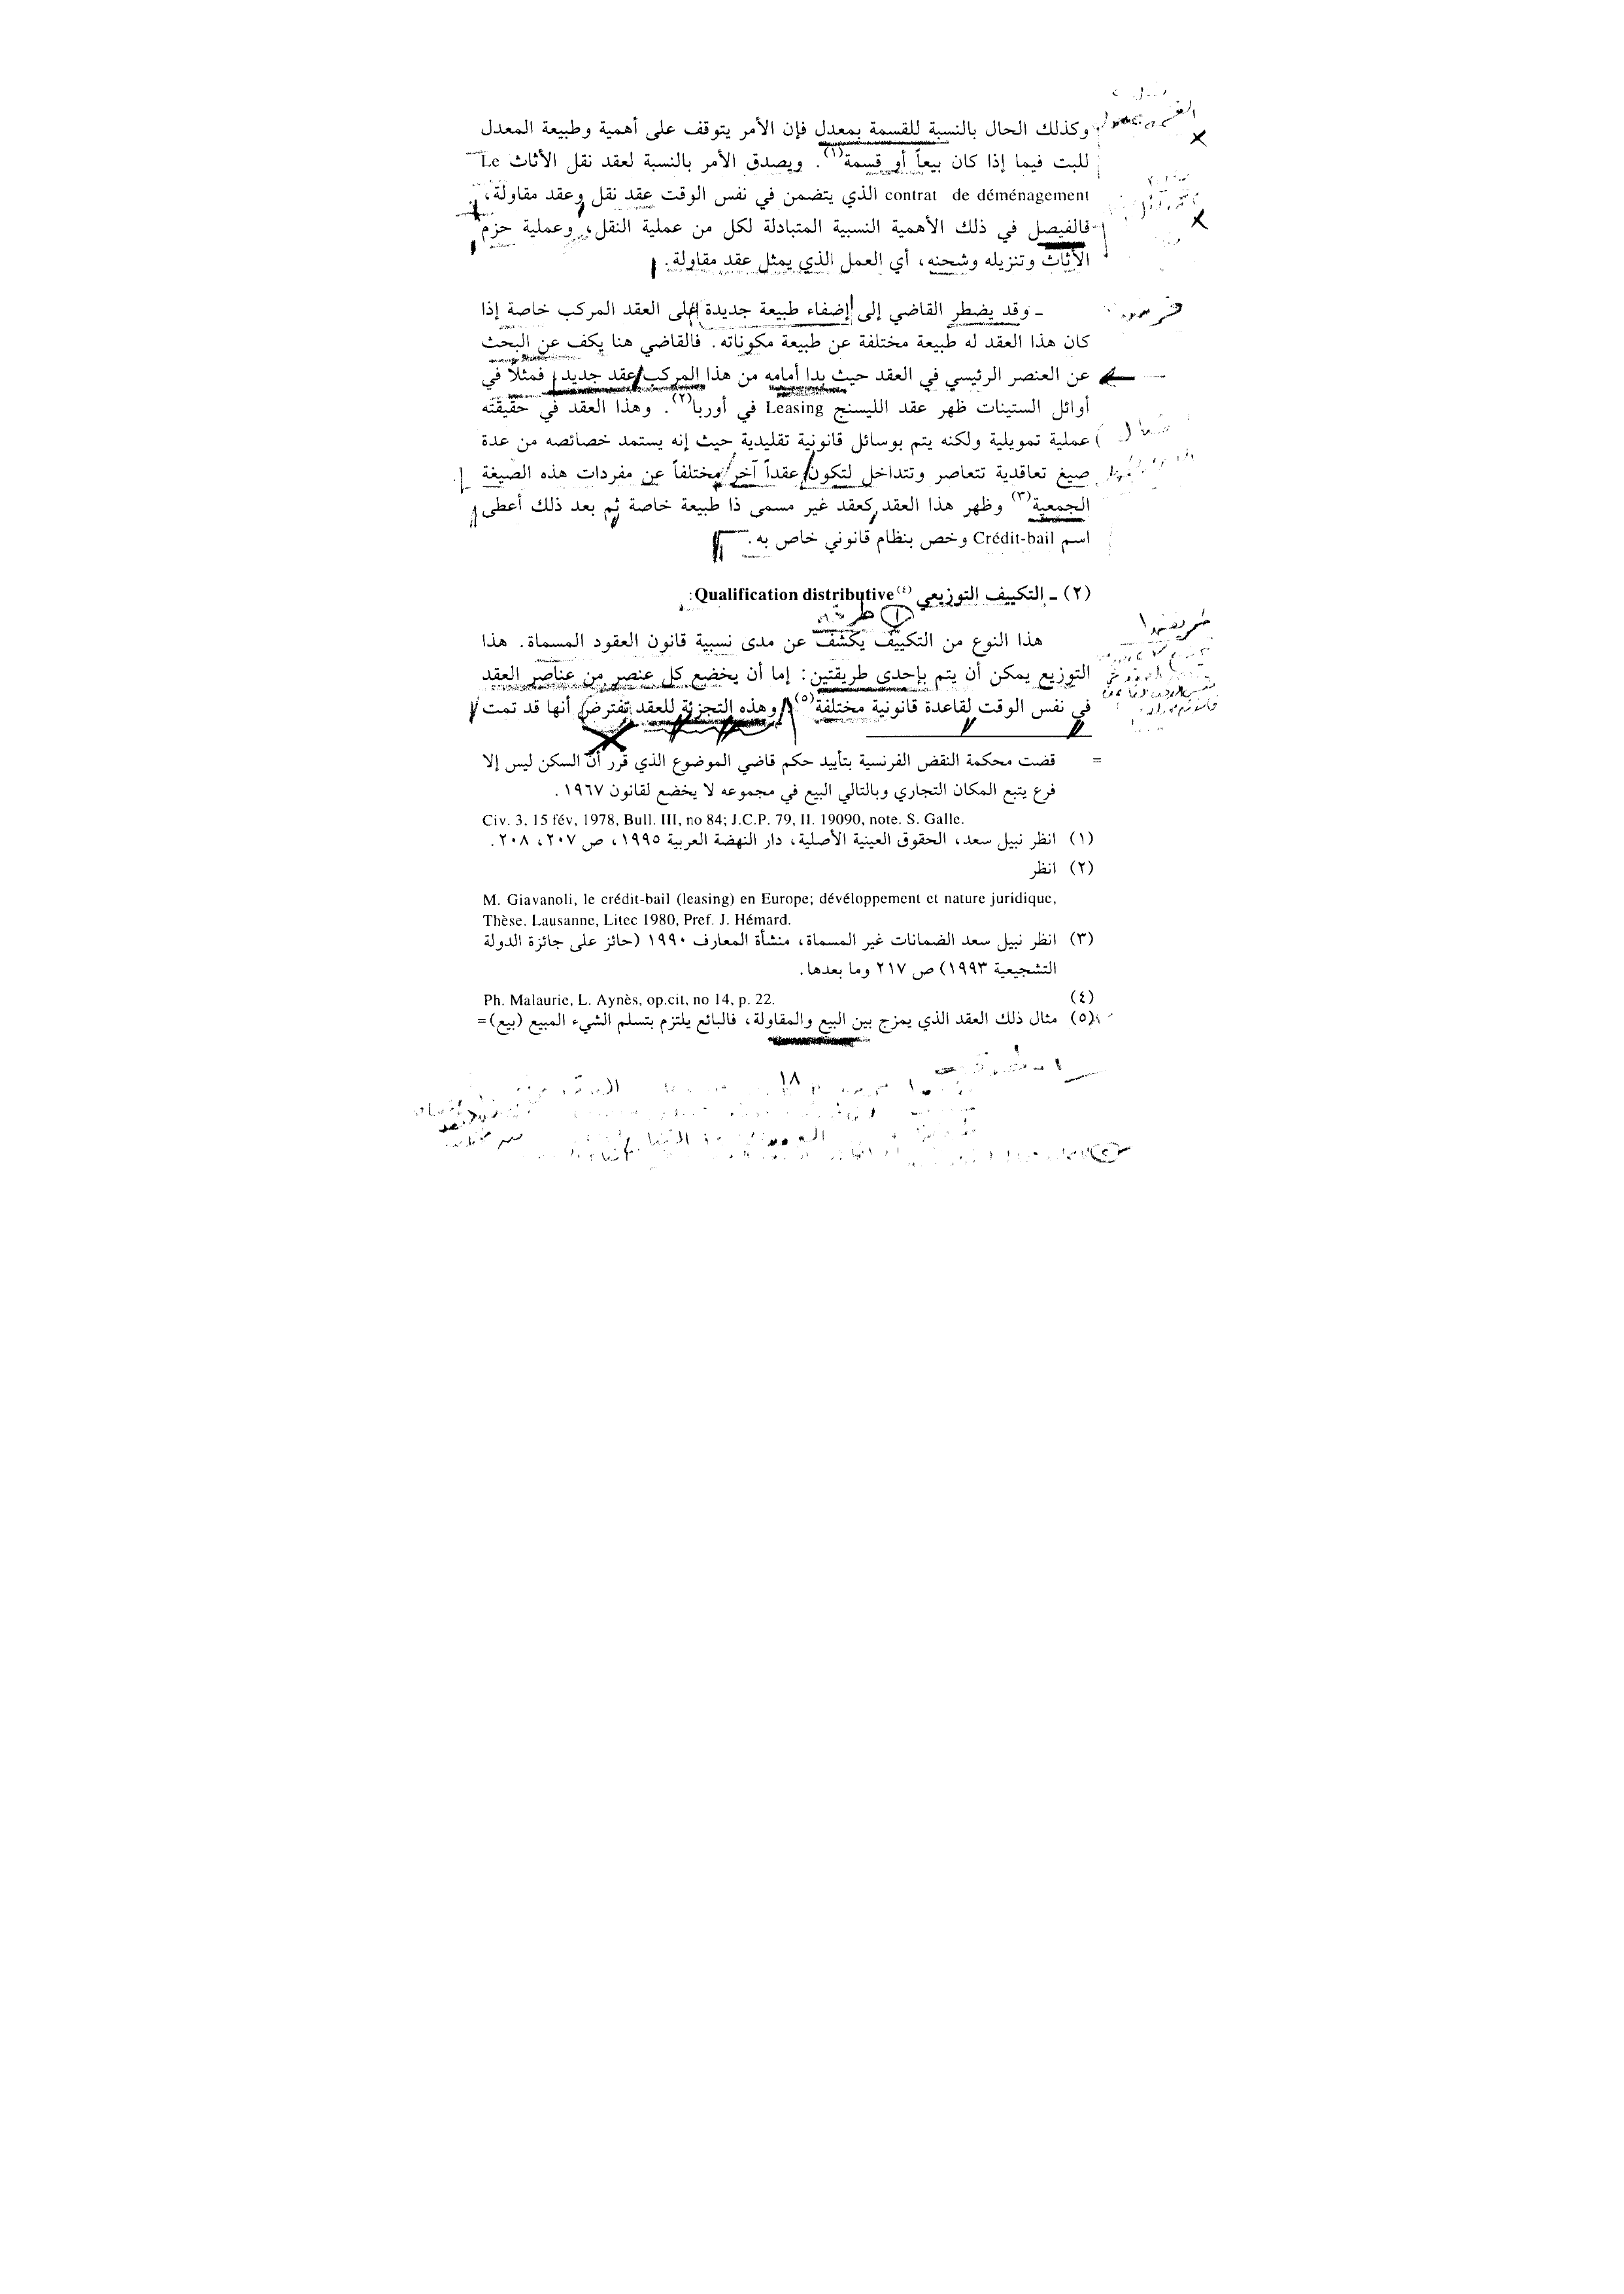 وكذلك الحال بالنسبة للقسمة بمعدل فإن الأمر يتوقف على أهمية وطبيعة المعدل
للبت فيما إذا كان بيعاً أو قسمة(١). ويصدق الأمر بالنسبة لعقد نقل الأثاث Le
contrat de déménagement الذي يتضمن في نفس الوقت عقد نقل وعقد مقاولة،
فالفيصل في ذلك الأهمية النسبية المتبادلة لكل من عملية النقل، وعملية حزم
الأثاث وتنزيله وشحنه، أي العمل الذي يمثل عقد مقاولة.
ـ وقد يضطر القاضي إلى إضفاء طبيعة جديدة على العقد المركب خاصة إذا
كان هذا العقد له طبيعة مختلفة عن طبيعة مكوناته. فالقاضي هنا يكف عن البحث
عن العنصر الرئيسي في العقد حيث بدا أمامه من هذا المركب عقد جديد، فمثلاً في
أوائل الستينات ظهر عقد الليسنج Leasing في أوربا(٢). وهذا العقد في حقيقته
عملية تمويلية ولكنه يتم بوسائل قانونية تقليدية حيث إنه يستمد خصائصه من عدة
صيغ تعاقدية تتعاصر وتتداخل لتكون عقداً آخر مختلفاً عن مفردات هذه الصيغة
الجمعية(٣) وظهر هذا العقد كعقد غير مسمى ذا طبيعة خاصة ثم بعد ذلك أعطى
اسم Crédit-bail وخص بنظام قانوني خاص به.
(٢) ـ التكييف التوزيعي Qualification distributive(٤):
هذا النوع من التكييف يكشف عن مدى نسبية قانون العقود المسماة. هذا
التوزيع يمكن أن يتم بإحدى طريقتين: إما أن يخضع كل عنصر من عناصر العقد
في نفس الوقت لقاعدة قانونية مختلفة(٥)، وهذه التجزئة للعقد تفترض أنها قد تمت
= قضت محكمة النقض الفرنسية بتأييد حكم قاضي الموضوع الذي قرر أن السكن ليس إلا
فرع يتبع المكان التجاري وبالتالي البيع في مجموعه لا يخضع لقانون ١٩٦٧.
Civ. 3, 15 fév, 1978, Bull. III, no 84; J.C.P. 79, II. 19090, note. S. Galle.
(١) انظر نبيل سعد، الحقوق العينية الأصلية، دار النهضة العربية ١٩٩٥، ص ٢٠٧، ٢٠٨.
(٢) انظر
M. Giavanoli, le crédit-bail (leasing) en Europe; dévéloppement et nature juridique,
Thèse. Lausanne, Litec 1980, Pref. J. Hémard.
(٣) انظر نبيل سعد الضمانات غير المسماة، منشأة المعارف ١٩٩٠ (حائز على جائزة الدولة
التشجيعية ١٩٩٣) ص ٢١٧ وما بعدها.
(٤) Ph. Malaurie, L. Aynès, op.cit, no 14, p. 22.
(٥) مثال ذلك العقد الذي يمزج بين البيع والمقاولة، فالبائع يلتزم بتسلم الشيء المبيع (بيع)=
١٨